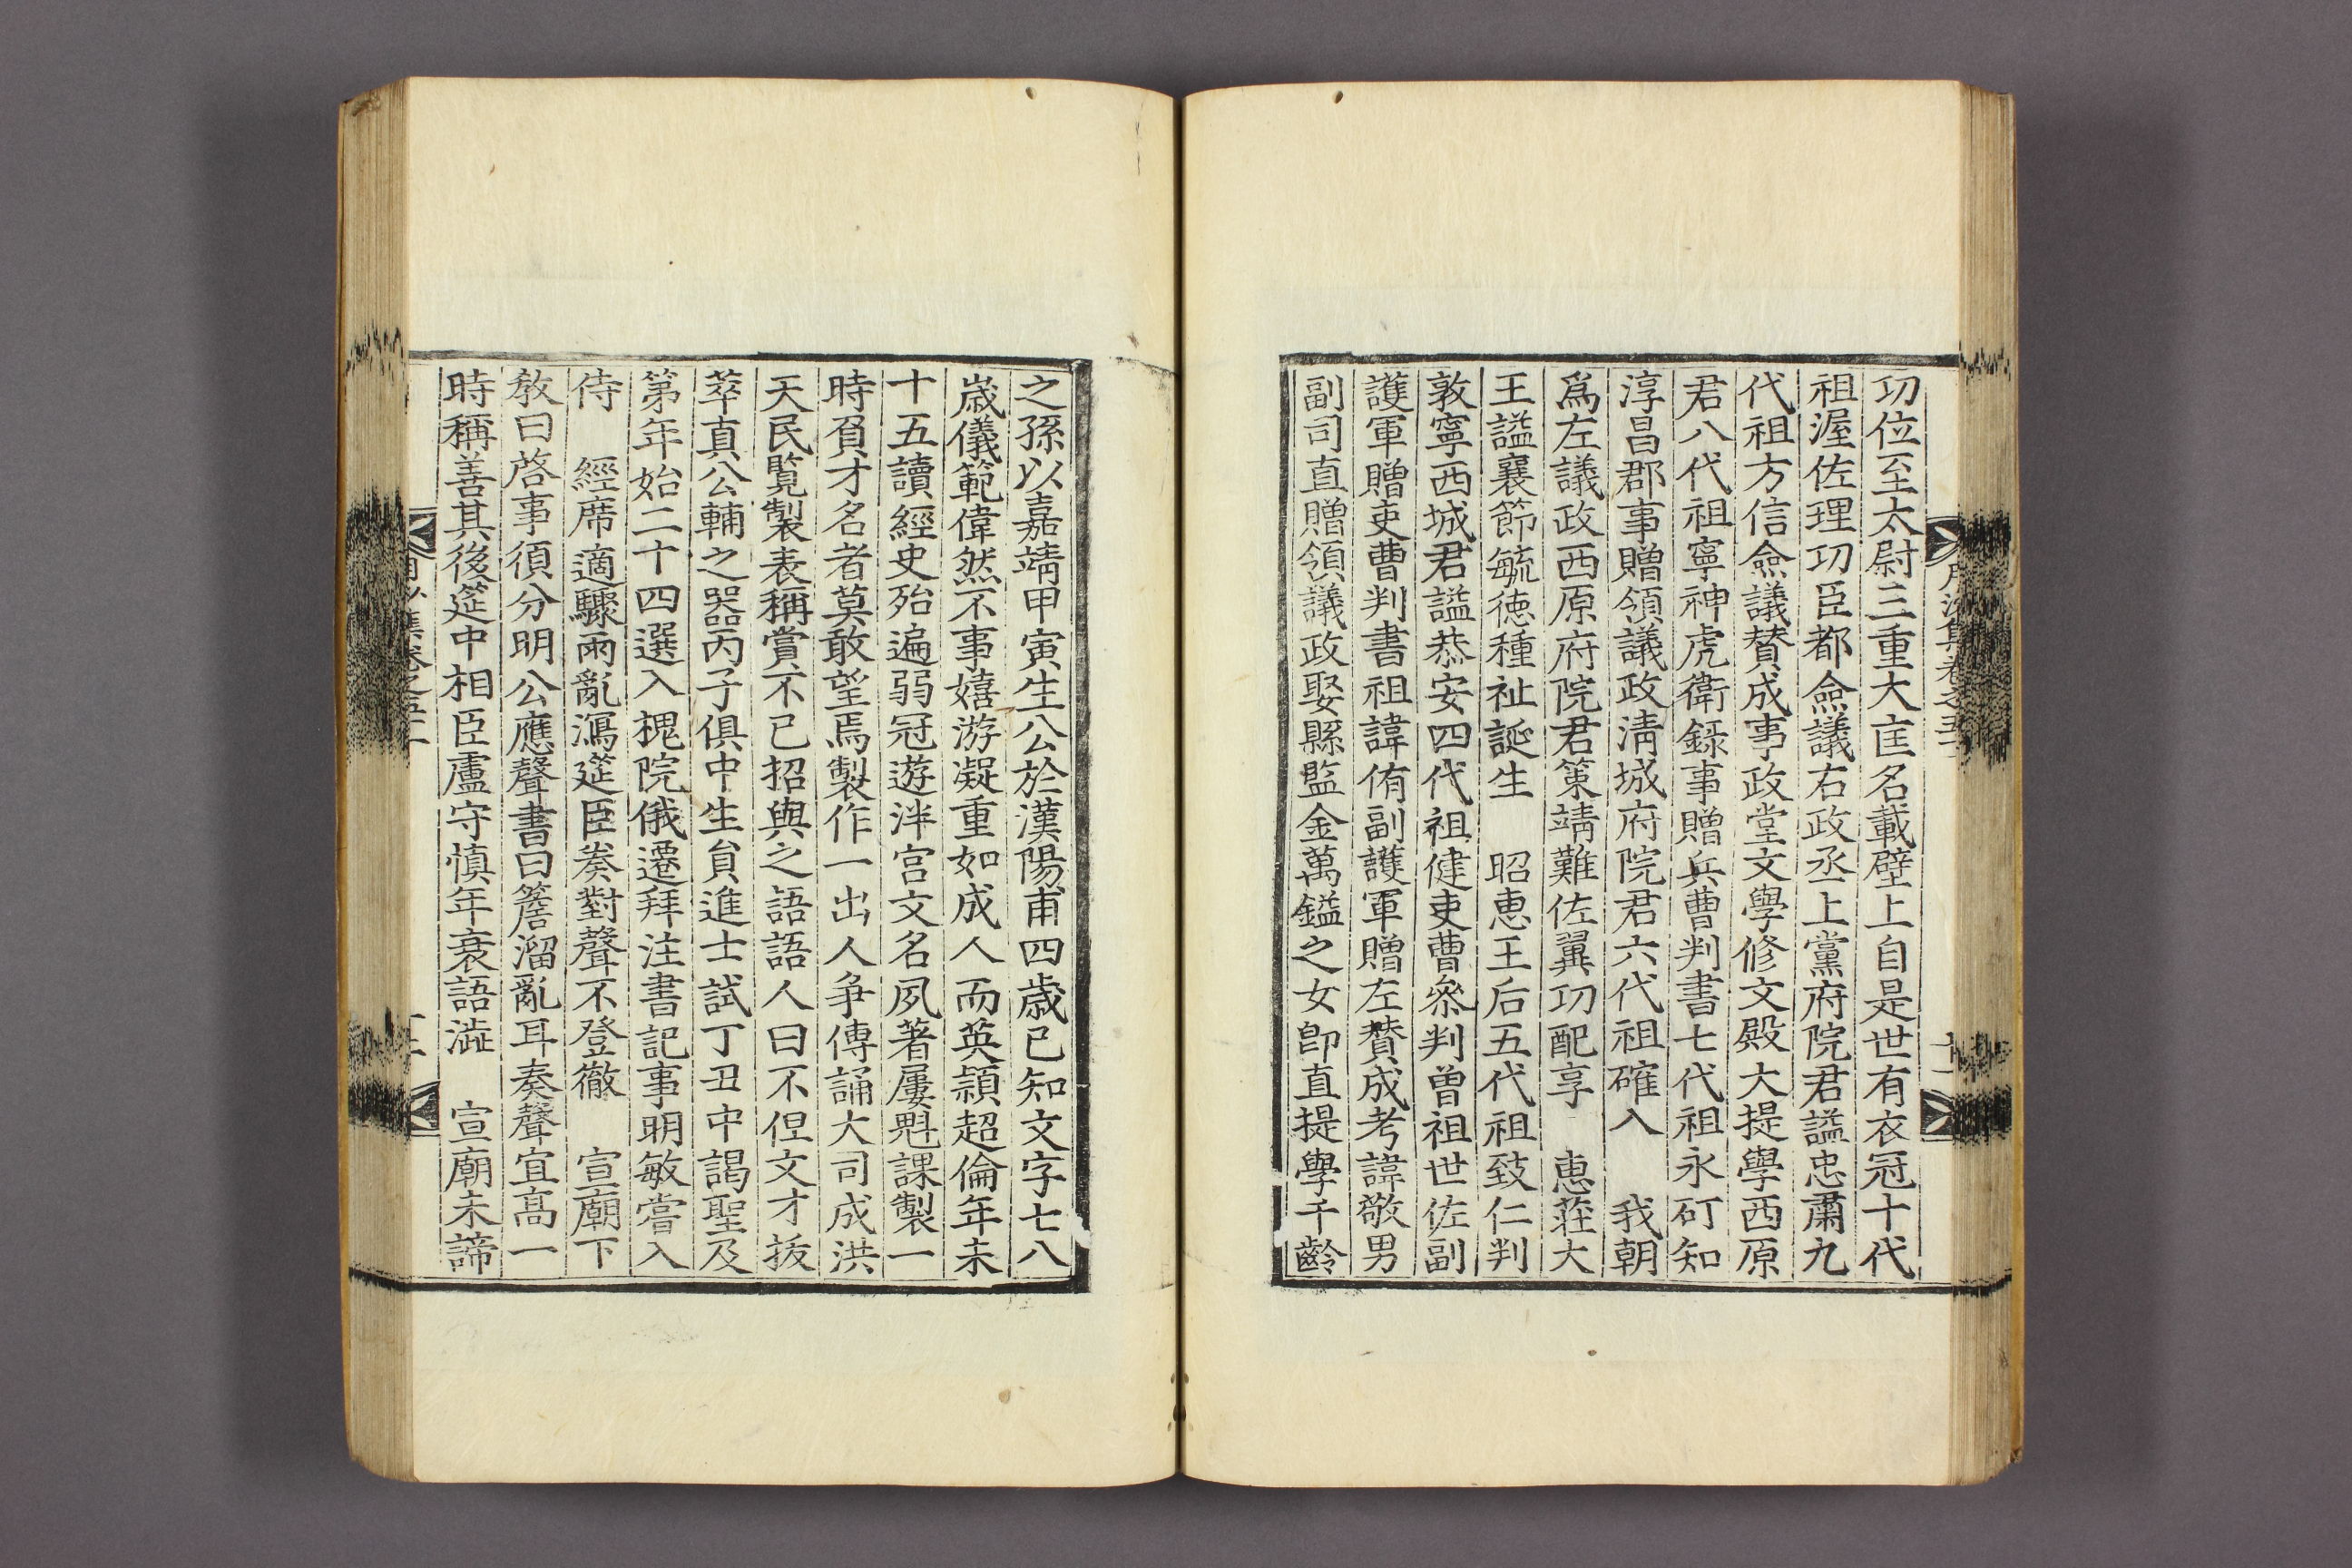 功位至太尉三重大匡名載壁上自是世有衣冠十代
祖渥佐理功臣都僉議右政丞上黨府院君謚忠肅九
代祖方信僉議賛成事政堂文學修文殿大提學西原
君八代祖寧神虎衛錄事贈兵曹判書七代祖永矴知
淳昌郡事贈領議政淸城府院君六代祖確入　我朝
爲左議政西原府院君策靖難佐翼功配享　惠莊大
王謚襄節毓徳種祉誕生　昭惠王后五代祖致仁判
敦寧西城君謚恭安四代祖健吏曹叅判曾祖世佐副
護軍贈吏曹判書祖諱侑副護軍贈左賛成考諱敬男
副司直贈領議政娶縣監金萬鎰之女卽直提學千齡
之孫以嘉靖甲寅生公於漢陽甫四歲已知文字七八
歲儀範偉然不事嬉游凝重如成人而英穎超倫年未
十五讀經史殆遍弱冠遊泮宮文名夙著屢魁課製一
時負才名者莫敢望焉製作一出人爭傳誦大司成洪
天民覧製表稱賞不已招與之語語人曰不但文才拔
萃真公輔之器丙子俱中生員進士試丁丑中謁聖及
第年始二十四選入槐院俄遷拜注書記事明敏嘗入
侍　經席適驟雨亂瀉筵臣奏對聲不登徹　宣廟下
敎曰啓事須分明公應聲書曰簷溜亂耳奏聲宜高一
時稱善其後筵中相臣盧守愼年衰語澁　宣廟未諦